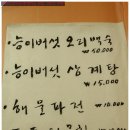 능이버섯 오리백숙
₩50,000
능이버섯 삼계탕
₩15,000
해물파전 ₩10,000